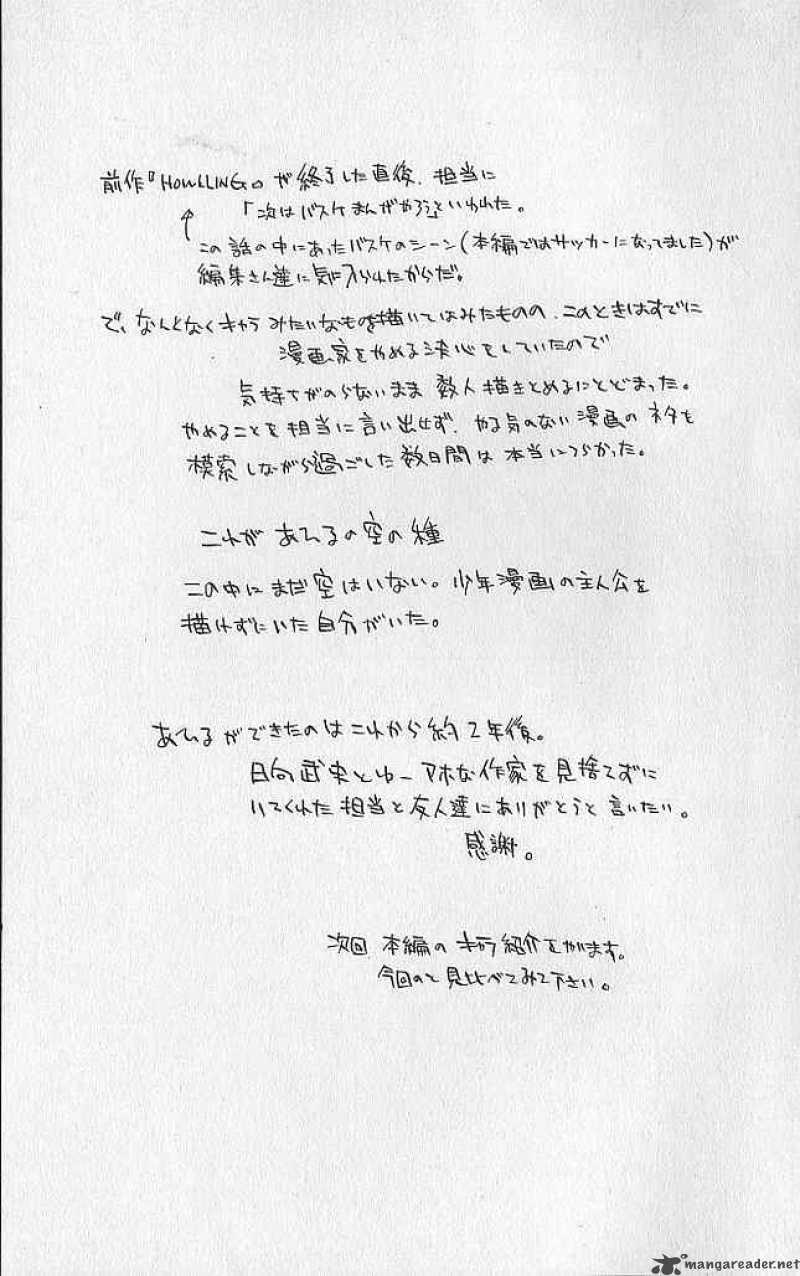 前作『HOWLLING』が終了した直後、担当に
「次はバスケまんがやろう」といわれた。
この話の中にあったバスケのシーン(本編ではサッカーになってました)が
編集さん達に気に入られたからだ。
で、なんとなくキャラみたいなものを描いてはみたものの、このときはすでに
漫画家をやめる決心をしていたので
気持ちがのらないまま 数人描きとめるにとどまった。
やめることを担当に言い出せず、やる気のない漫画のネタを
模索しながら過ごした数日間は本当につらかった。
これが あひるの空の種
この中にまだ空はいない。少年漫画の主人公を
描けずにいた自分がいた。
あひるができたのはこれから約2年後。
日向武史とゆーアホな作家を見捨てずに
いてくれた担当と友人達にありがとうと言いたい。
感謝。
次回 本編のキャラ紹介をやります。
今回のと見比べてみて下さい。
mangareader.net